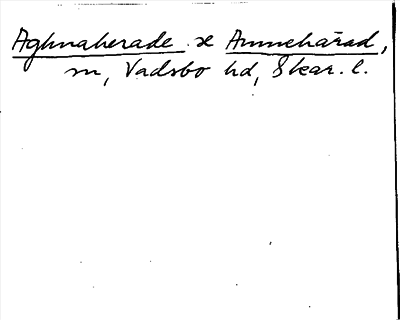 Aghnaherade se Amnehärad,
sn, Vadsbo hd, Skar. l.